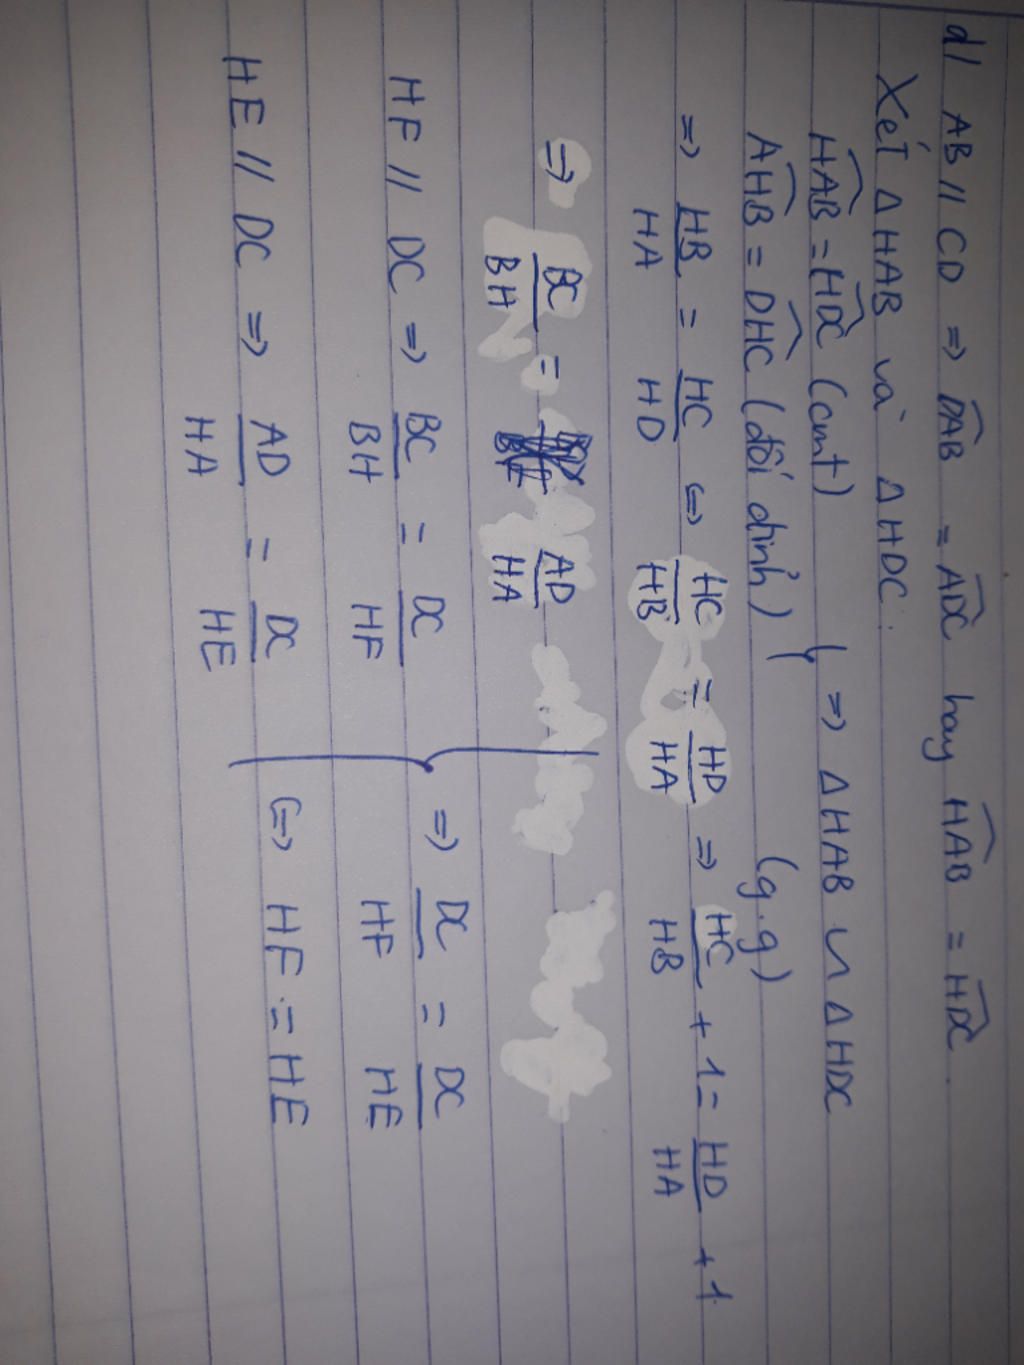 d/ AB // CD => DAB̂ = ADĈ hay HAB̂ = HDĈ.
Xét Δ HAB và Δ HDC:
HAB̂ = HDĈ (cmt)
AHB̂ = DHĈ (đối đỉnh) } => Δ HAB ∽ Δ HDC (g.g)
=> HB/HA = HC/HD <=> HC/HB = HD/HA => HC/HB + 1 = HD/HA + 1
=> BC/BH = AD/HA
HF // DC => BC/BH = DC/HF } => DC/HF = DC/HE
HE // DC => AD/HA = DC/HE <=> HF = HE